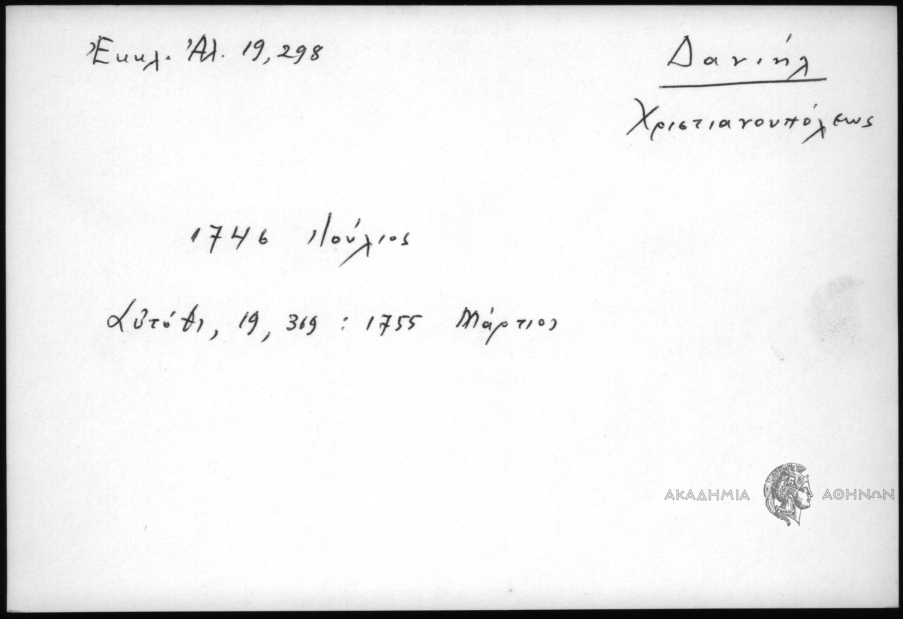 Ἐκκλ. Ἀλ. 19,298
Δανιήλ
Χριστιανουπόλεως
1746 Ἰούλιος
Αὐτόθι, 19, 369 : 1755 Μάρτιος
ΑΚΑΔΗΜΙΑ ΑΘΗΝΩΝ